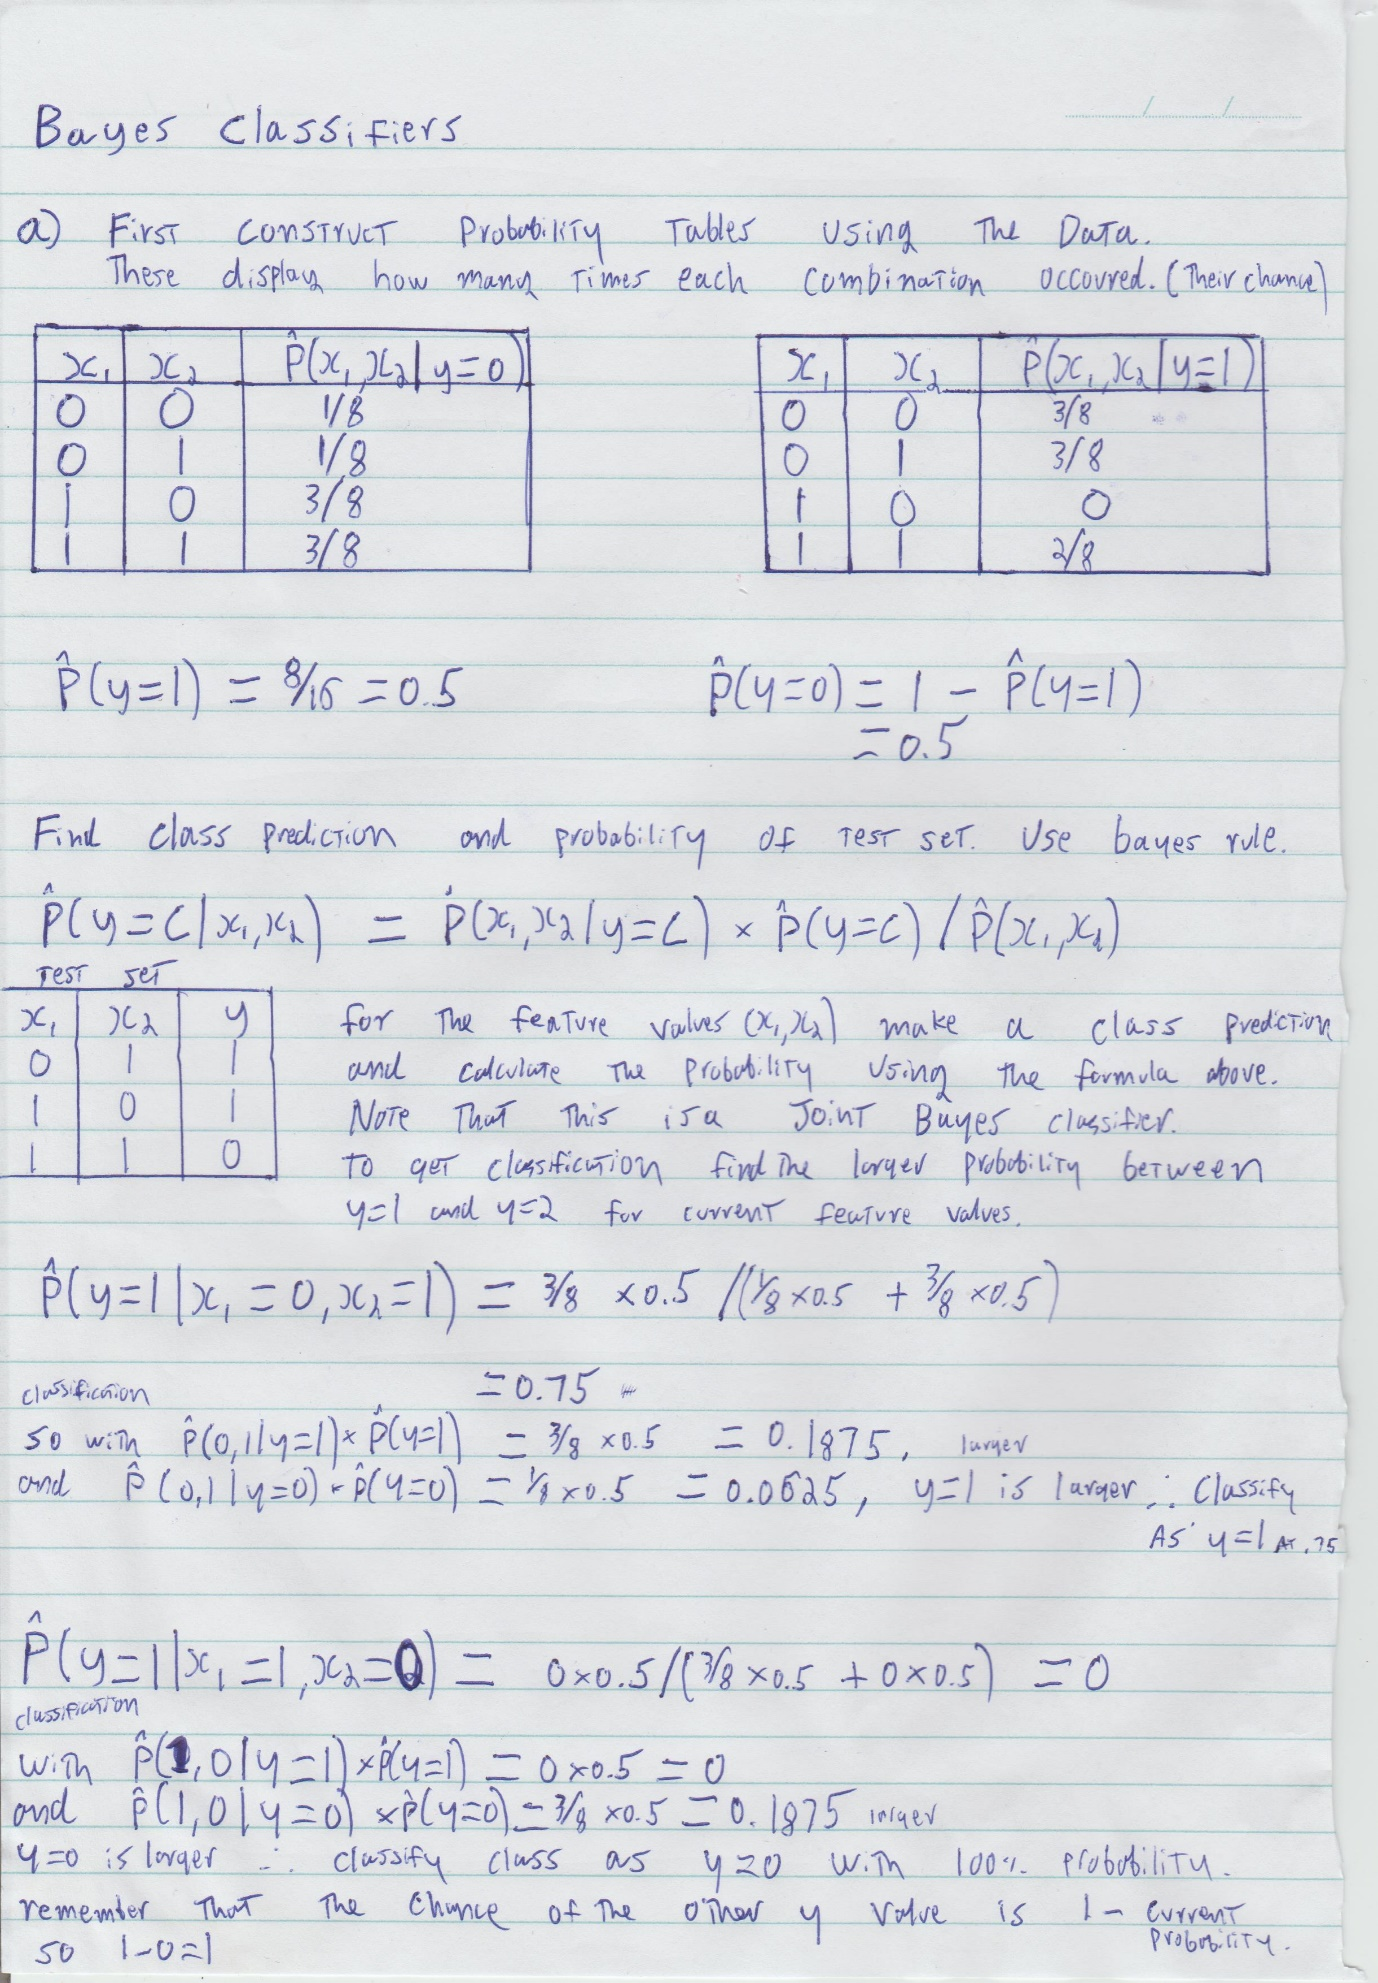 Bayes Classifiers
a) First construct Probability Tables using The Data.
These display how many Times each combination occoured. (Their chance)
x₁ x₂ P̂(x₁,x₂|y=0)
0 0 1/8
0 1 1/8
1 0 3/8
1 1 3/8
x₁ x₂ P̂(x₁,x₂|y=1)
0 0 3/8
0 1 3/8
1 0 0
1 1 2/8
P̂(y=1) = 8/16 = 0.5
P̂(y=0) = 1 - P̂(y=1)
= 0.5
Find class prediction and probability of Test set. Use bayes rule.
P̂(y=C|x₁,x₂) = P̂(x₁,x₂|y=C) × P̂(y=C) / P̂(x₁,x₂)
Test set
x₁ x₂ y
0 1 1
1 0 1
1 1 0
for the feature values (x₁,x₂) make a class prediction
and calculate the Probability using the formula above.
Note That This is a Joint Bayes classifier.
to get classification find the larger probability between
y=1 and y=2 for current feature values.
P̂(y=1|x₁=0,x₂=1) = 3/8 ×0.5 /(1/8 ×0.5 + 3/8 ×0.5)
= 0.75
classification
so with P̂(0,1|y=1)× P̂(y=1) = 3/8 ×0.5 = 0.1875, larger
and P̂(0,1|y=0) × P̂(y=0) = 1/8 ×0.5 = 0.0625, y=1 is larger ∴ Classify
As y=1 AT .75
P̂(y=1|x₁=1,x₂=0) = 0×0.5/(3/8 ×0.5 + 0×0.5) = 0
classification
with P̂(1,0|y=1)×P̂(y=1) = 0×0.5 = 0
and P̂(1,0|y=0) ×P̂(y=0) = 3/8 ×0.5 = 0.1875 larger
y=0 is larger ∴ classify class as y=0 with 100% probability.
remember That The Chance of The other y value is 1 - current
probability.
so 1-0=1